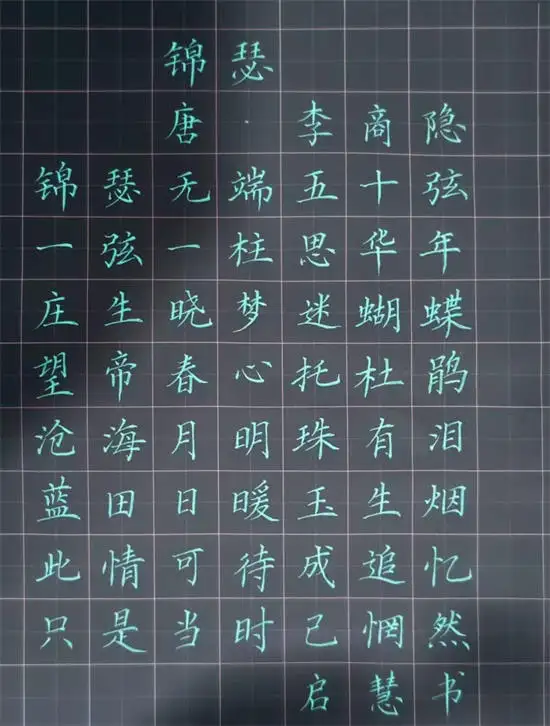 锦瑟
唐·李商隐
锦瑟无端五十弦
一弦一柱思华年
庄生晓梦迷蝴蝶
望帝春心托杜鹃
沧海月明珠有泪
蓝田日暖玉生烟
此情可待成追忆
只是当时已惘然
启慧书